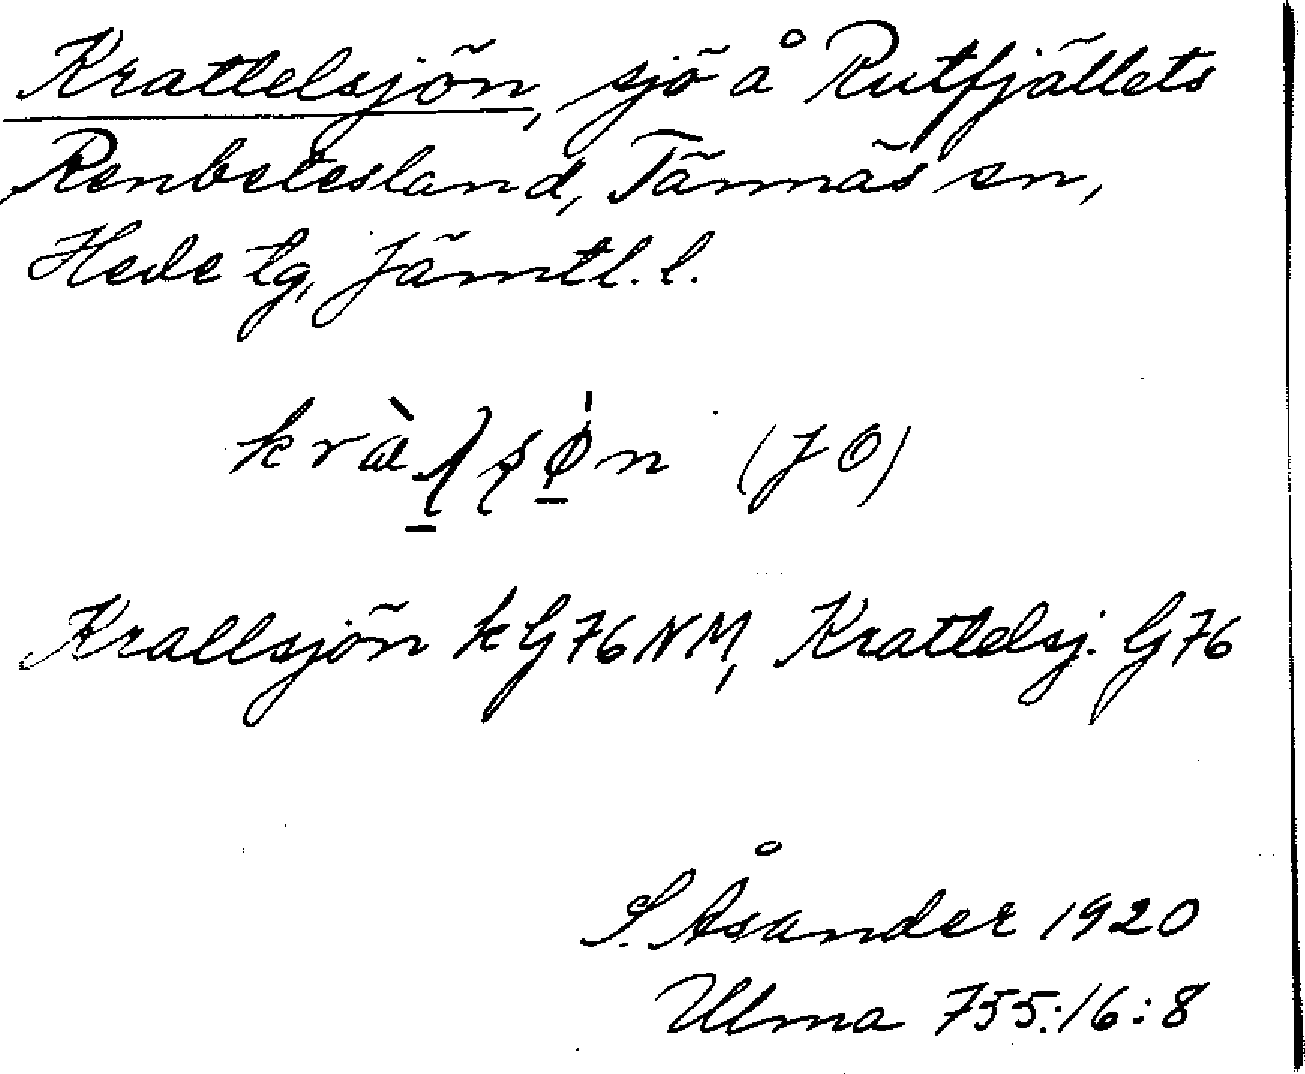 Krattelsjön, sjö å Rutfjällets
Renbetesland, Tännäs sn,
Hede tg, Jämtl. l.
(JO)
Krallsjön k G76NM, Krattelsj. G76
S. Åsander 1920
Ulma 755:16:8